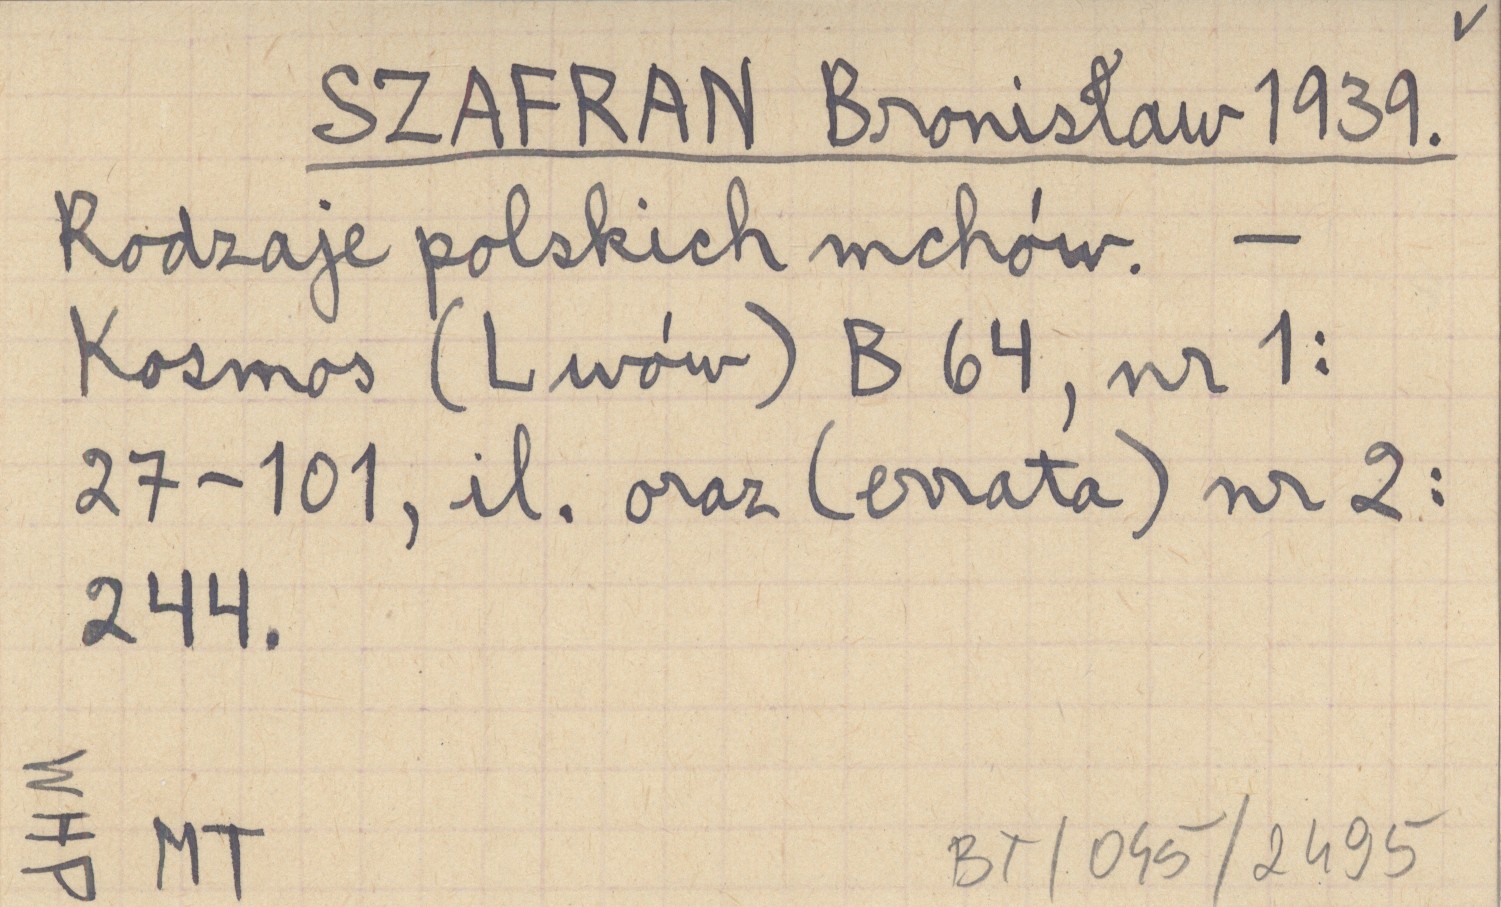 ✓
SZAFRAN Bronisław 1939.
Rodzaje polskich mchów. —
Kosmos (Lwów) B 64, nr 1:
27-101, il. oraz (errata) nr 2:
244.
WHP
MT
BT/045/2495